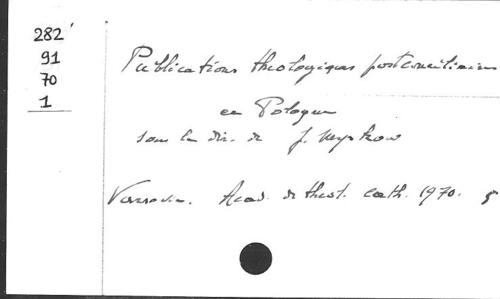 282'
91
70
1
Publications théologiques postconciliaires
en Pologne
sous la dir. de J. Myśkow
Varsovie. Acad. de théol. cath. 1970.